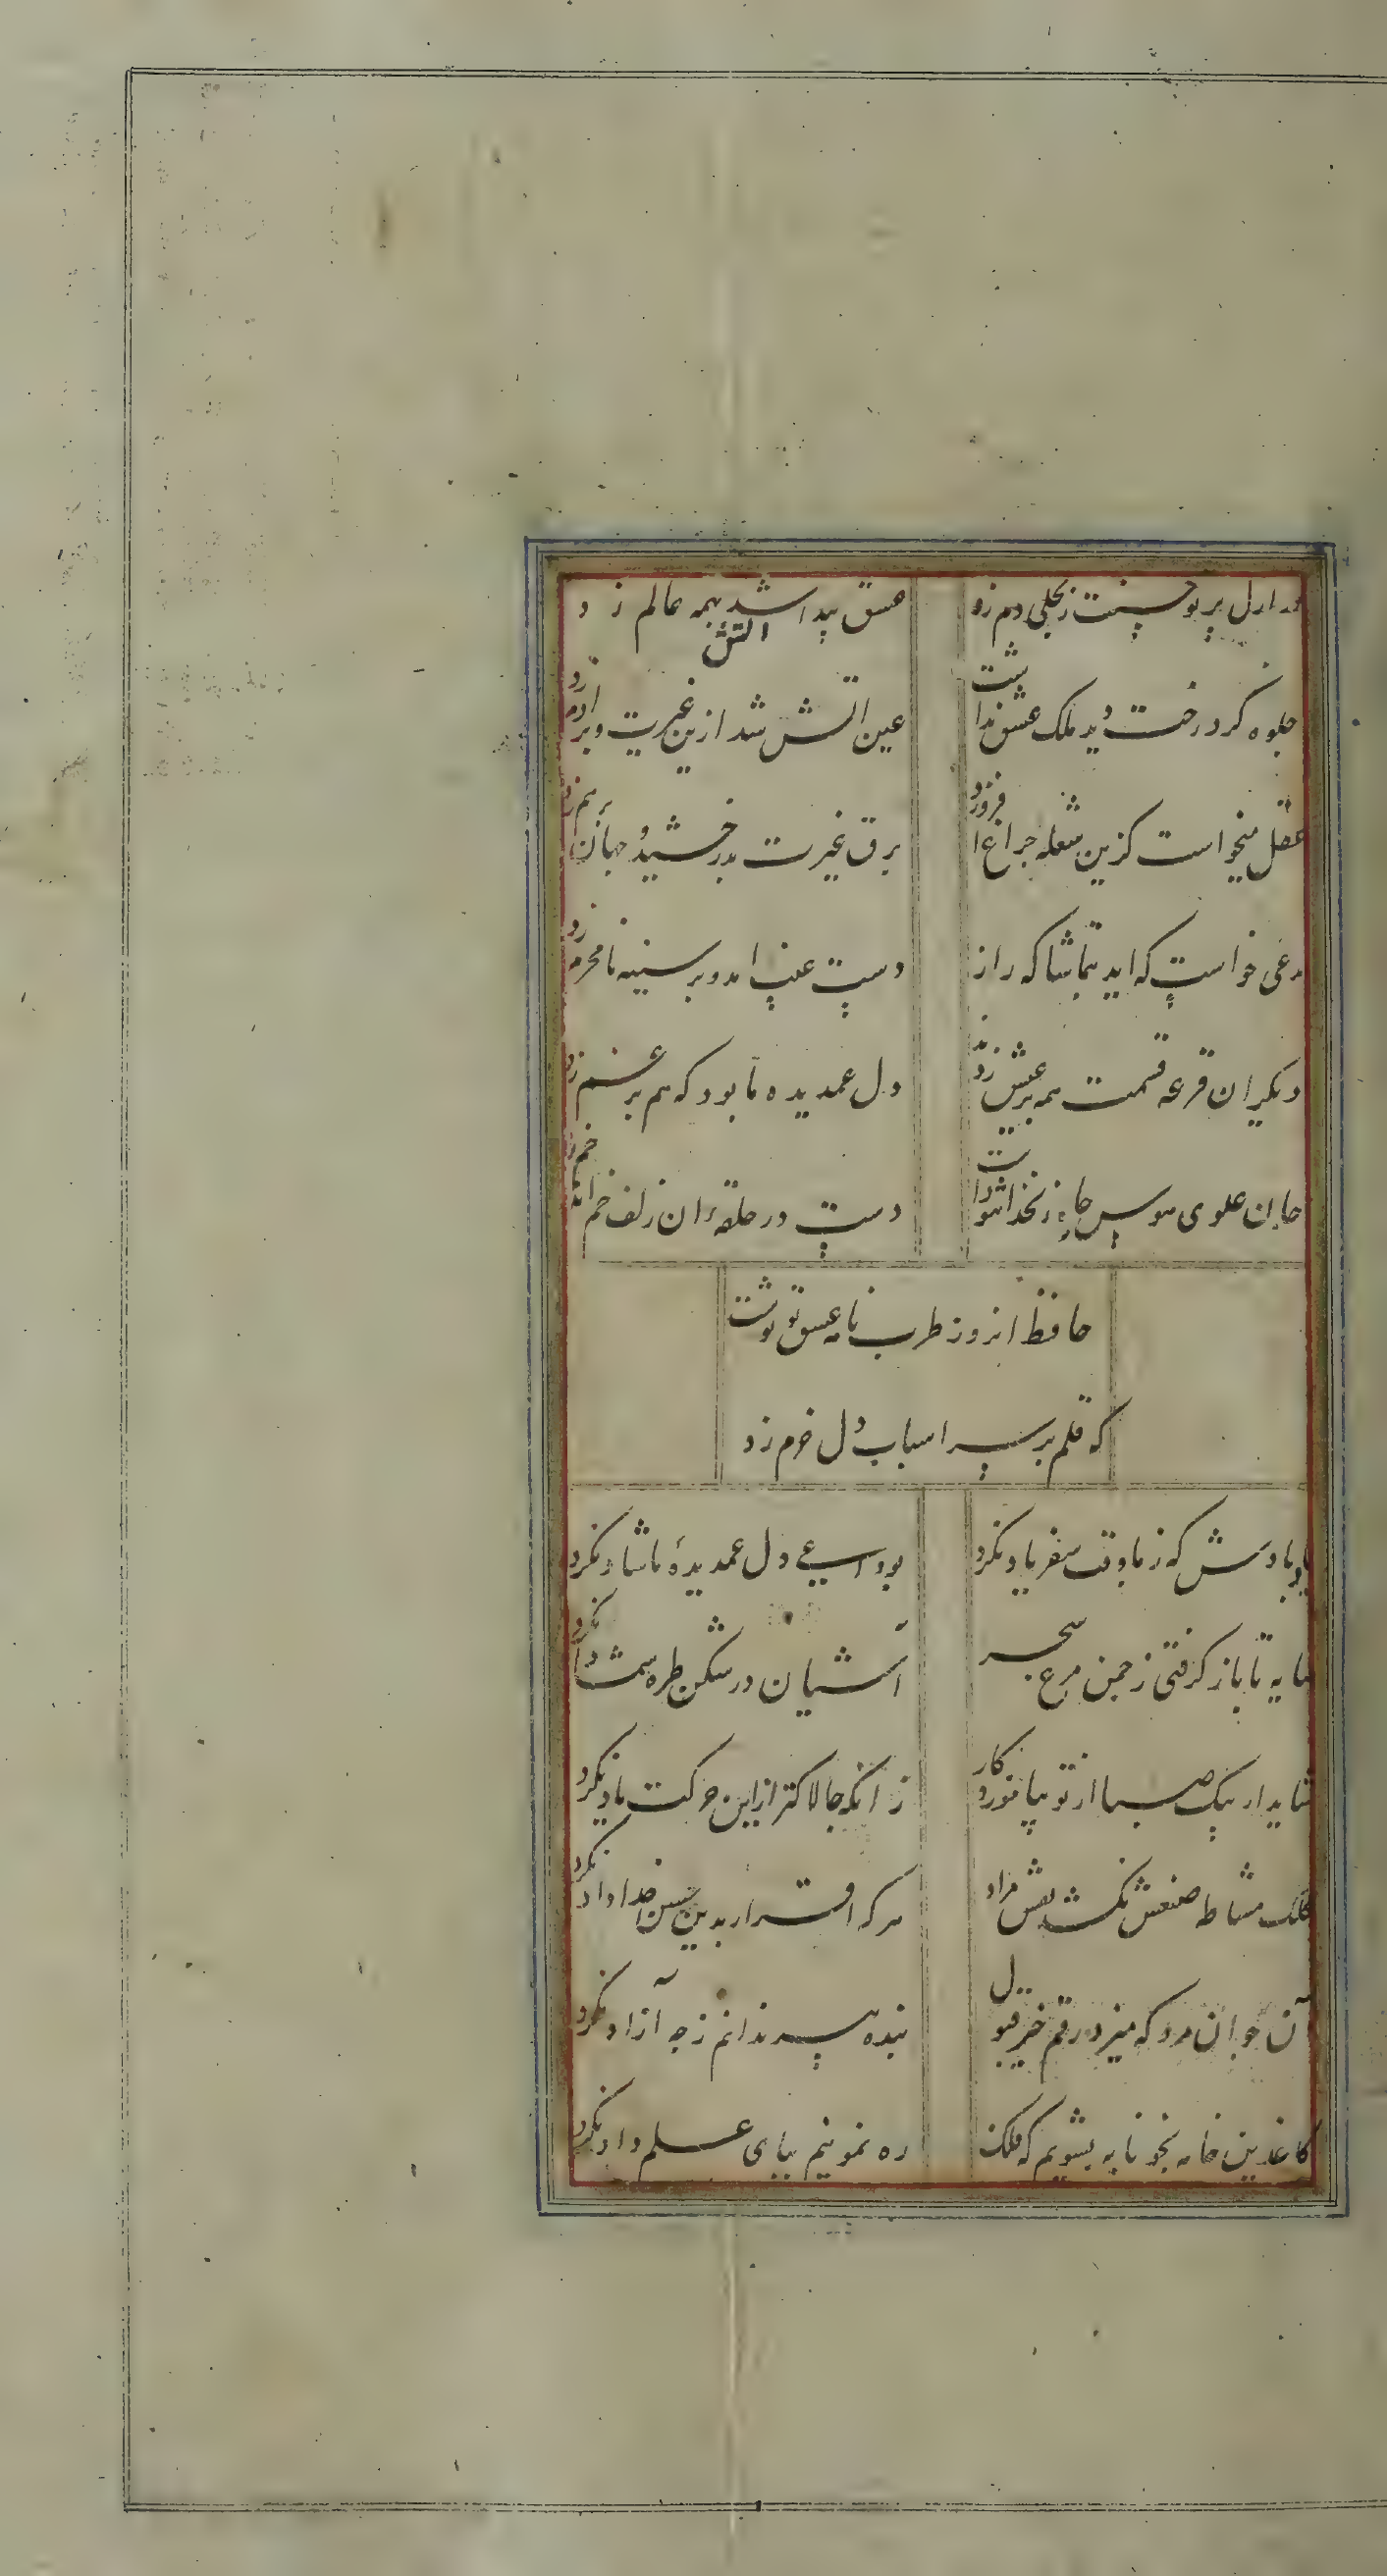 در ازل پرتو حسنت ز تجلی دم زد عشق پیدا شد اتش بهمه عالم زد
جلوه کرد رخت دید ملک عشق نداشت عین اتش شد ازین غیرت و بر ادم زد
عقل میخواست کزین شعله چراغ افروزد برق غیرت بدرخشید و جهان برهم زد
مدعی خواست که اید بتماشاکه راز دست غیب امد و بر سینه نامحرم زد
دیگران قرعه قسمت همه بر عیش زدند دل غمدیده ما بود که هم بر غم زد
جان علوی هوس چاه زنخدان تو داشت دست در حلقه ان زلف خم اندر خم زد
حافظ انروز طرب نامه عشق تو نوشت
که قلم بر سر اسباب دل خرم زد
یاد باد سش که ز ما وقت سفر یاد نکرد بوداعی دل غمدیدهٔ ما شاد نکرد
سایه تا باز گرفتی ز چمن مرغ سحر آشیان در شکن طره شمشاد نکرد
شاید ار پیک صبا از تو بیاموزد کار زانکه چالاکتر ازاین حرکت باد نکرد
کلک مشاطه صنعش نکشد نقش مراد هرکه اقرار بدین حسن خداداد نکرد
آن جوان مرد که میزد رقم خیر قبول بنده پیر ندانم ز چه آزاد نکرد
کاغدین خامه بخونابه بشویم که فلک ره نمونیم بپای علم داد نکرد